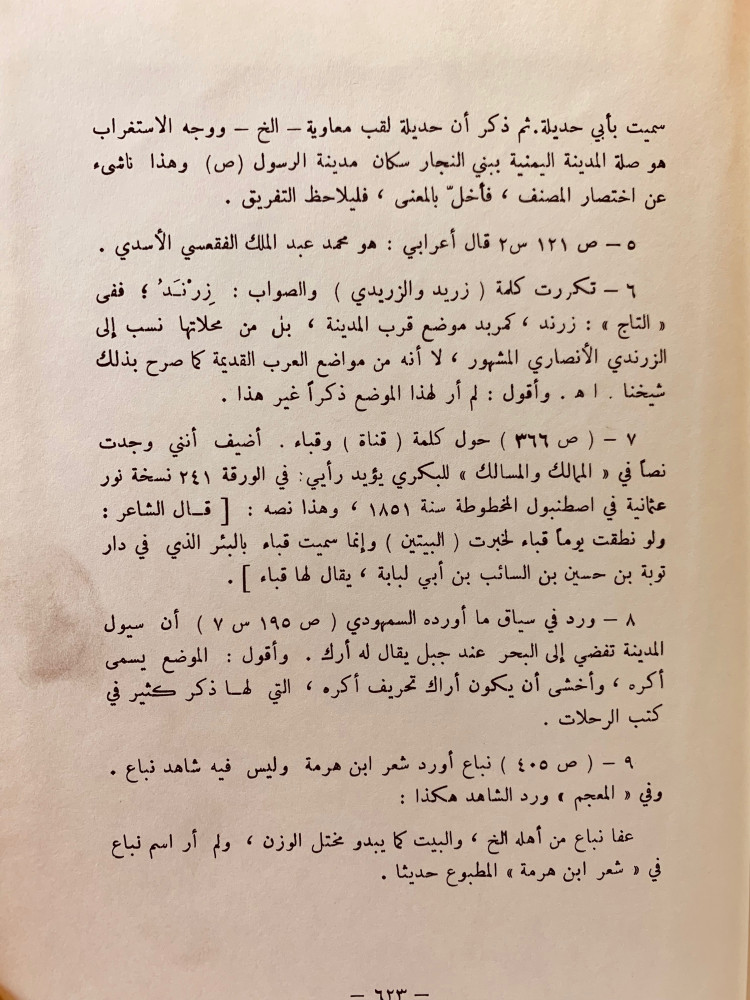 سميت بأبي حديلة. ثم ذكر أن حديلة لقب معاوية – الخ – ووجه الاستغراب
هو صلة المدينة اليمنية ببني النجار سكان مدينة الرسول (ص) وهذا ناشىء
عن اختصار المصنف ، فأخلّ بالمعنى ، فليلاحظ التفريق .
٥ – ص ١٢١ س٢ قال أعرابي : هو محمد عبد الملك الفقعسي الأسدي .
٦ – تكررت كلمة ( زريد والزريدي ) والصواب : زِرْنَدُ ؛ ففى
« التاج » : زرند ، كمربد موضع قرب المدينة ، بل من محلاتها نسب إلى
الزرندي الأنصاري المشهور ، لا أنه من مواضع العرب القديمة كما صرح بذلك
شيخنا . ا ه . وأقول : لم أر لهذا الموضع ذكراً غير هذا .
٧ – ( ص ٣٦٦ ) حول كلمة ( قناة ) وقباء . أضيف أنني وجدت
نصاً في « الممالك والمسالك » للبكري يؤيد رأيي : في الورقة ٢٤١ نسخة نور
عثمانية في اصطنبول المخطوطة سنة ١٨٥١ ، وهذا نصه : [ قال الشاعر :
ولو نطقت يوماً قباء لخبرت ( البيتين ) وإنما سميت قباء بالبئر الذي في دار
توبة بن حسين بن السائب بن أبي لبابة ، يقال لها قباء ] .
٨ – ورد في سياق ما أورده السمهودي ( ص ١٩٥ س ٧ ) أن سيول
المدينة تفضي إلى البحر عند جبل يقال له أرك . وأقول : الموضع يسمى
أكره ، وأخشى أن يكون أراك تحريف أكره ، التي لها ذكر كثير في
كتب الرحلات .
٩ – ( ص ٤٠٥ ) نباع أورد شعر ابن هرمة وليس فيه شاهد نباع .
وفي « المعجم » ورد الشاهد هكذا :
عفا نباع من أهله الخ ، والبيت كما يبدو مختل الوزن ، ولم أر اسم نباع
في « شعر ابن هرمة » المطبوع حديثا .
– ٦٢٣ –